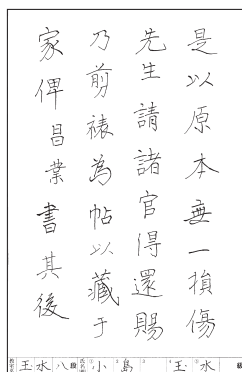 是以原本無一損傷
先生請諸官得還賜
乃剪裱為帖以藏于
家俾昌業書其後
級 玉水 小島 八段 玉水